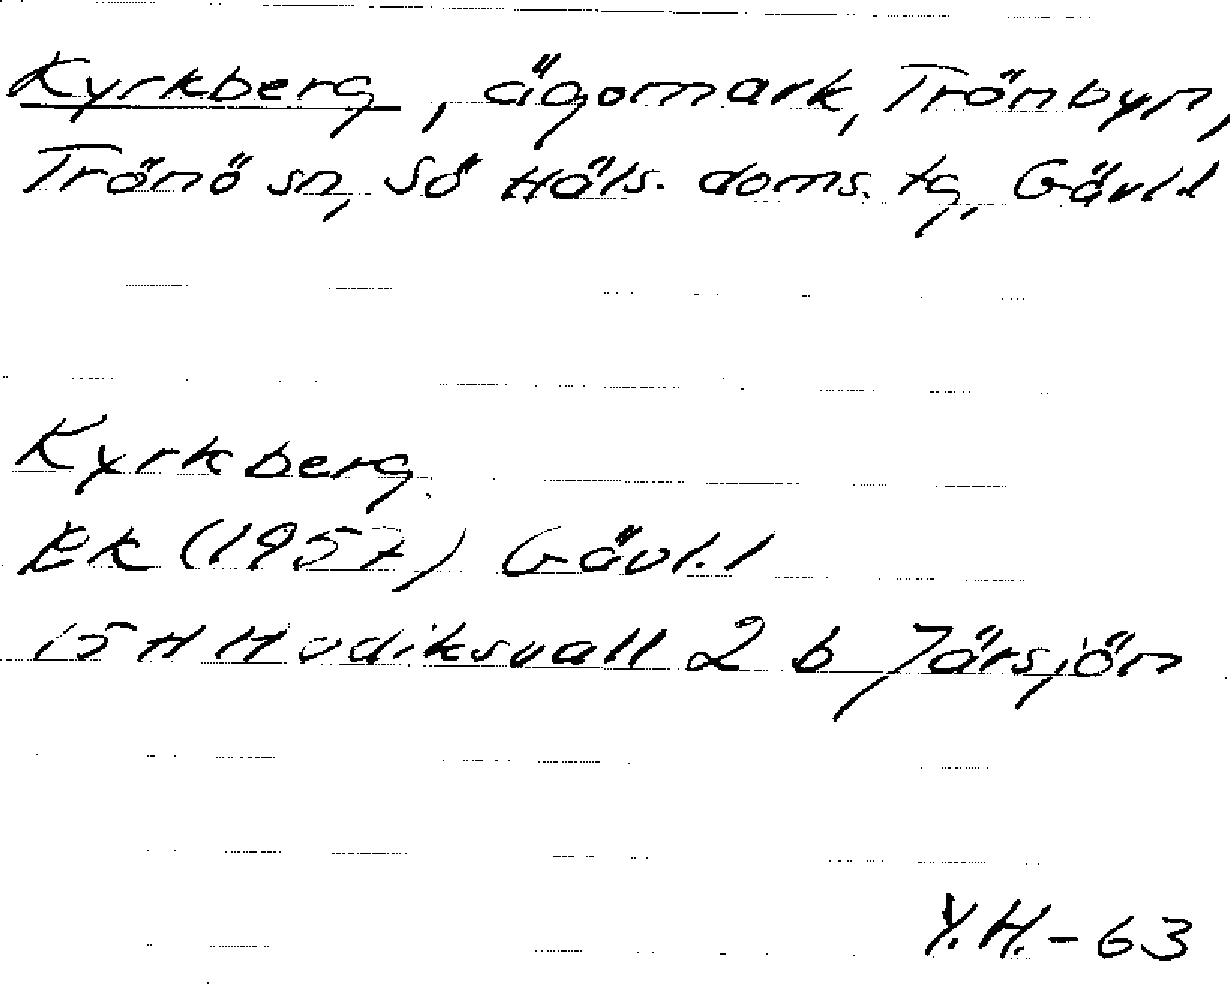 Kyrkberg, ägomark, Trönbyn,
Trönö sn, Sö Häls. doms. tg, Gävl.l
Kyrkberg
EK (1957) Gävl.l
15 H Hudiksvall 2 b Järsjön
Y.H.-63